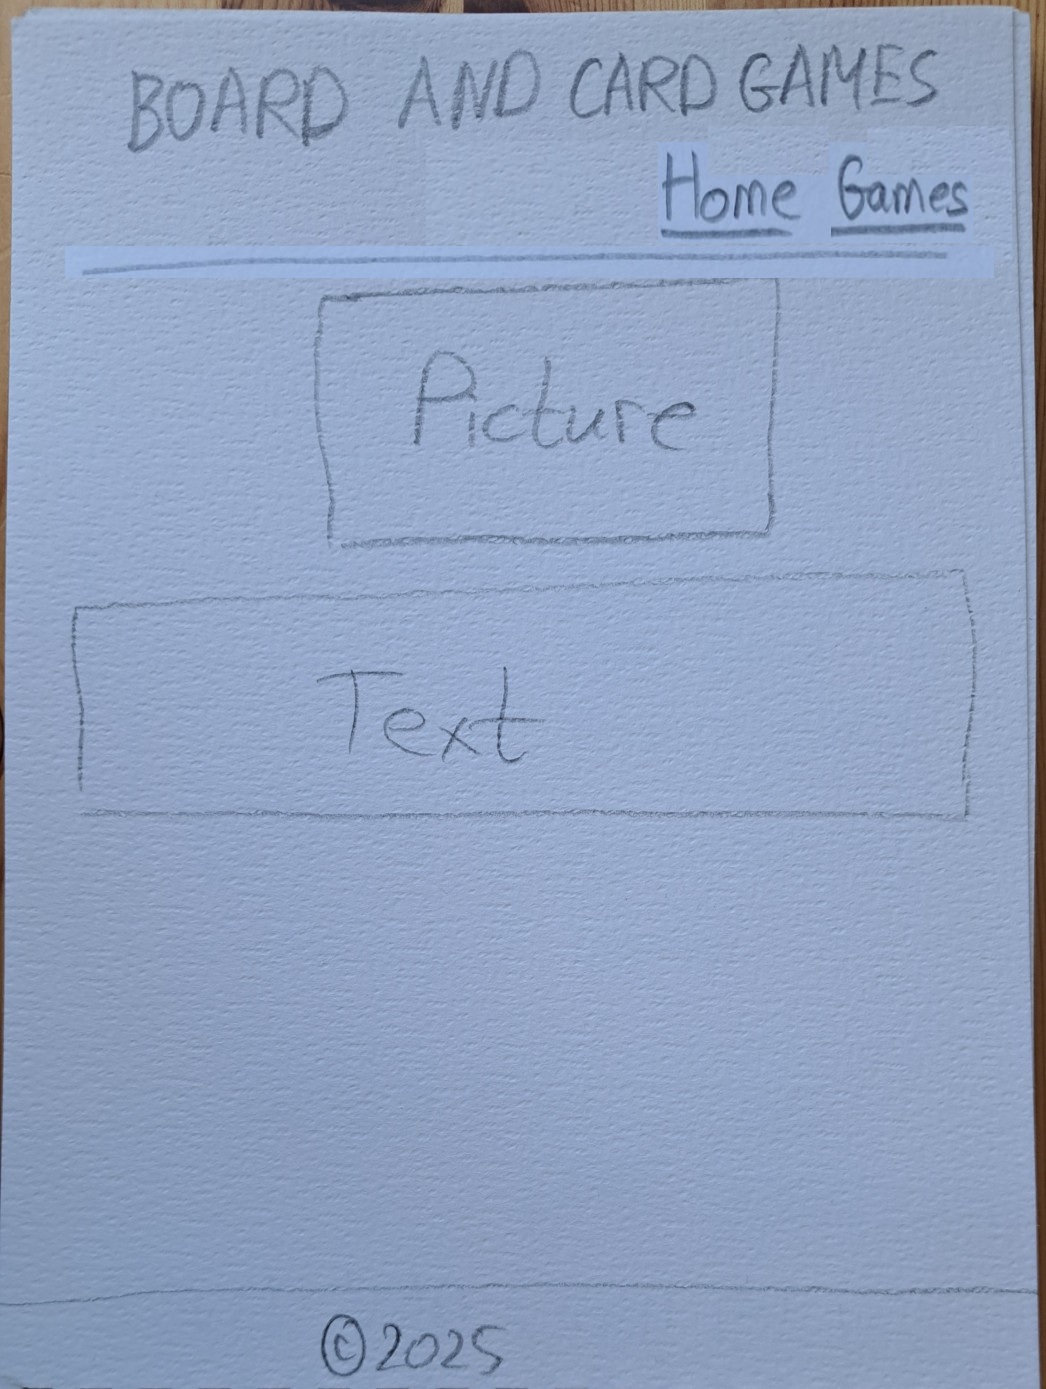 BOARD AND CARD GAMES
Home Games
Picture
Text
©2025